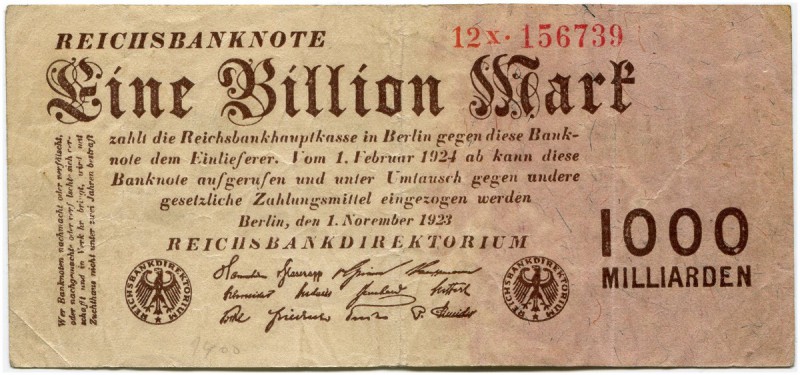 REICHSBANKNOTE
12X·156739
Eine Billion Mark
zahlt die Reichsbankhauptkasse in Berlin gegen diese Bank-
note dem Einlieferer. Vom 1. Februar 1924 ab kann diese
Banknote aufgerufen und unter Umtausch gegen andere
gesetzliche Zahlungsmittel eingezogen werden
Berlin, den 1. November 1923
REICHSBANKDIREKTORIUM
1000
MILLIARDEN
Wer Banknoten nachmacht oder verfälscht,
oder nachgemachte oder verfälschte sich ver-
schafft und in Verkehr bringt, wird mit
Zuchthaus nicht unter zwei Jahren bestraft
REICHSBANKDIREKTORIUM
REICHSBANKDIREKTORIUM